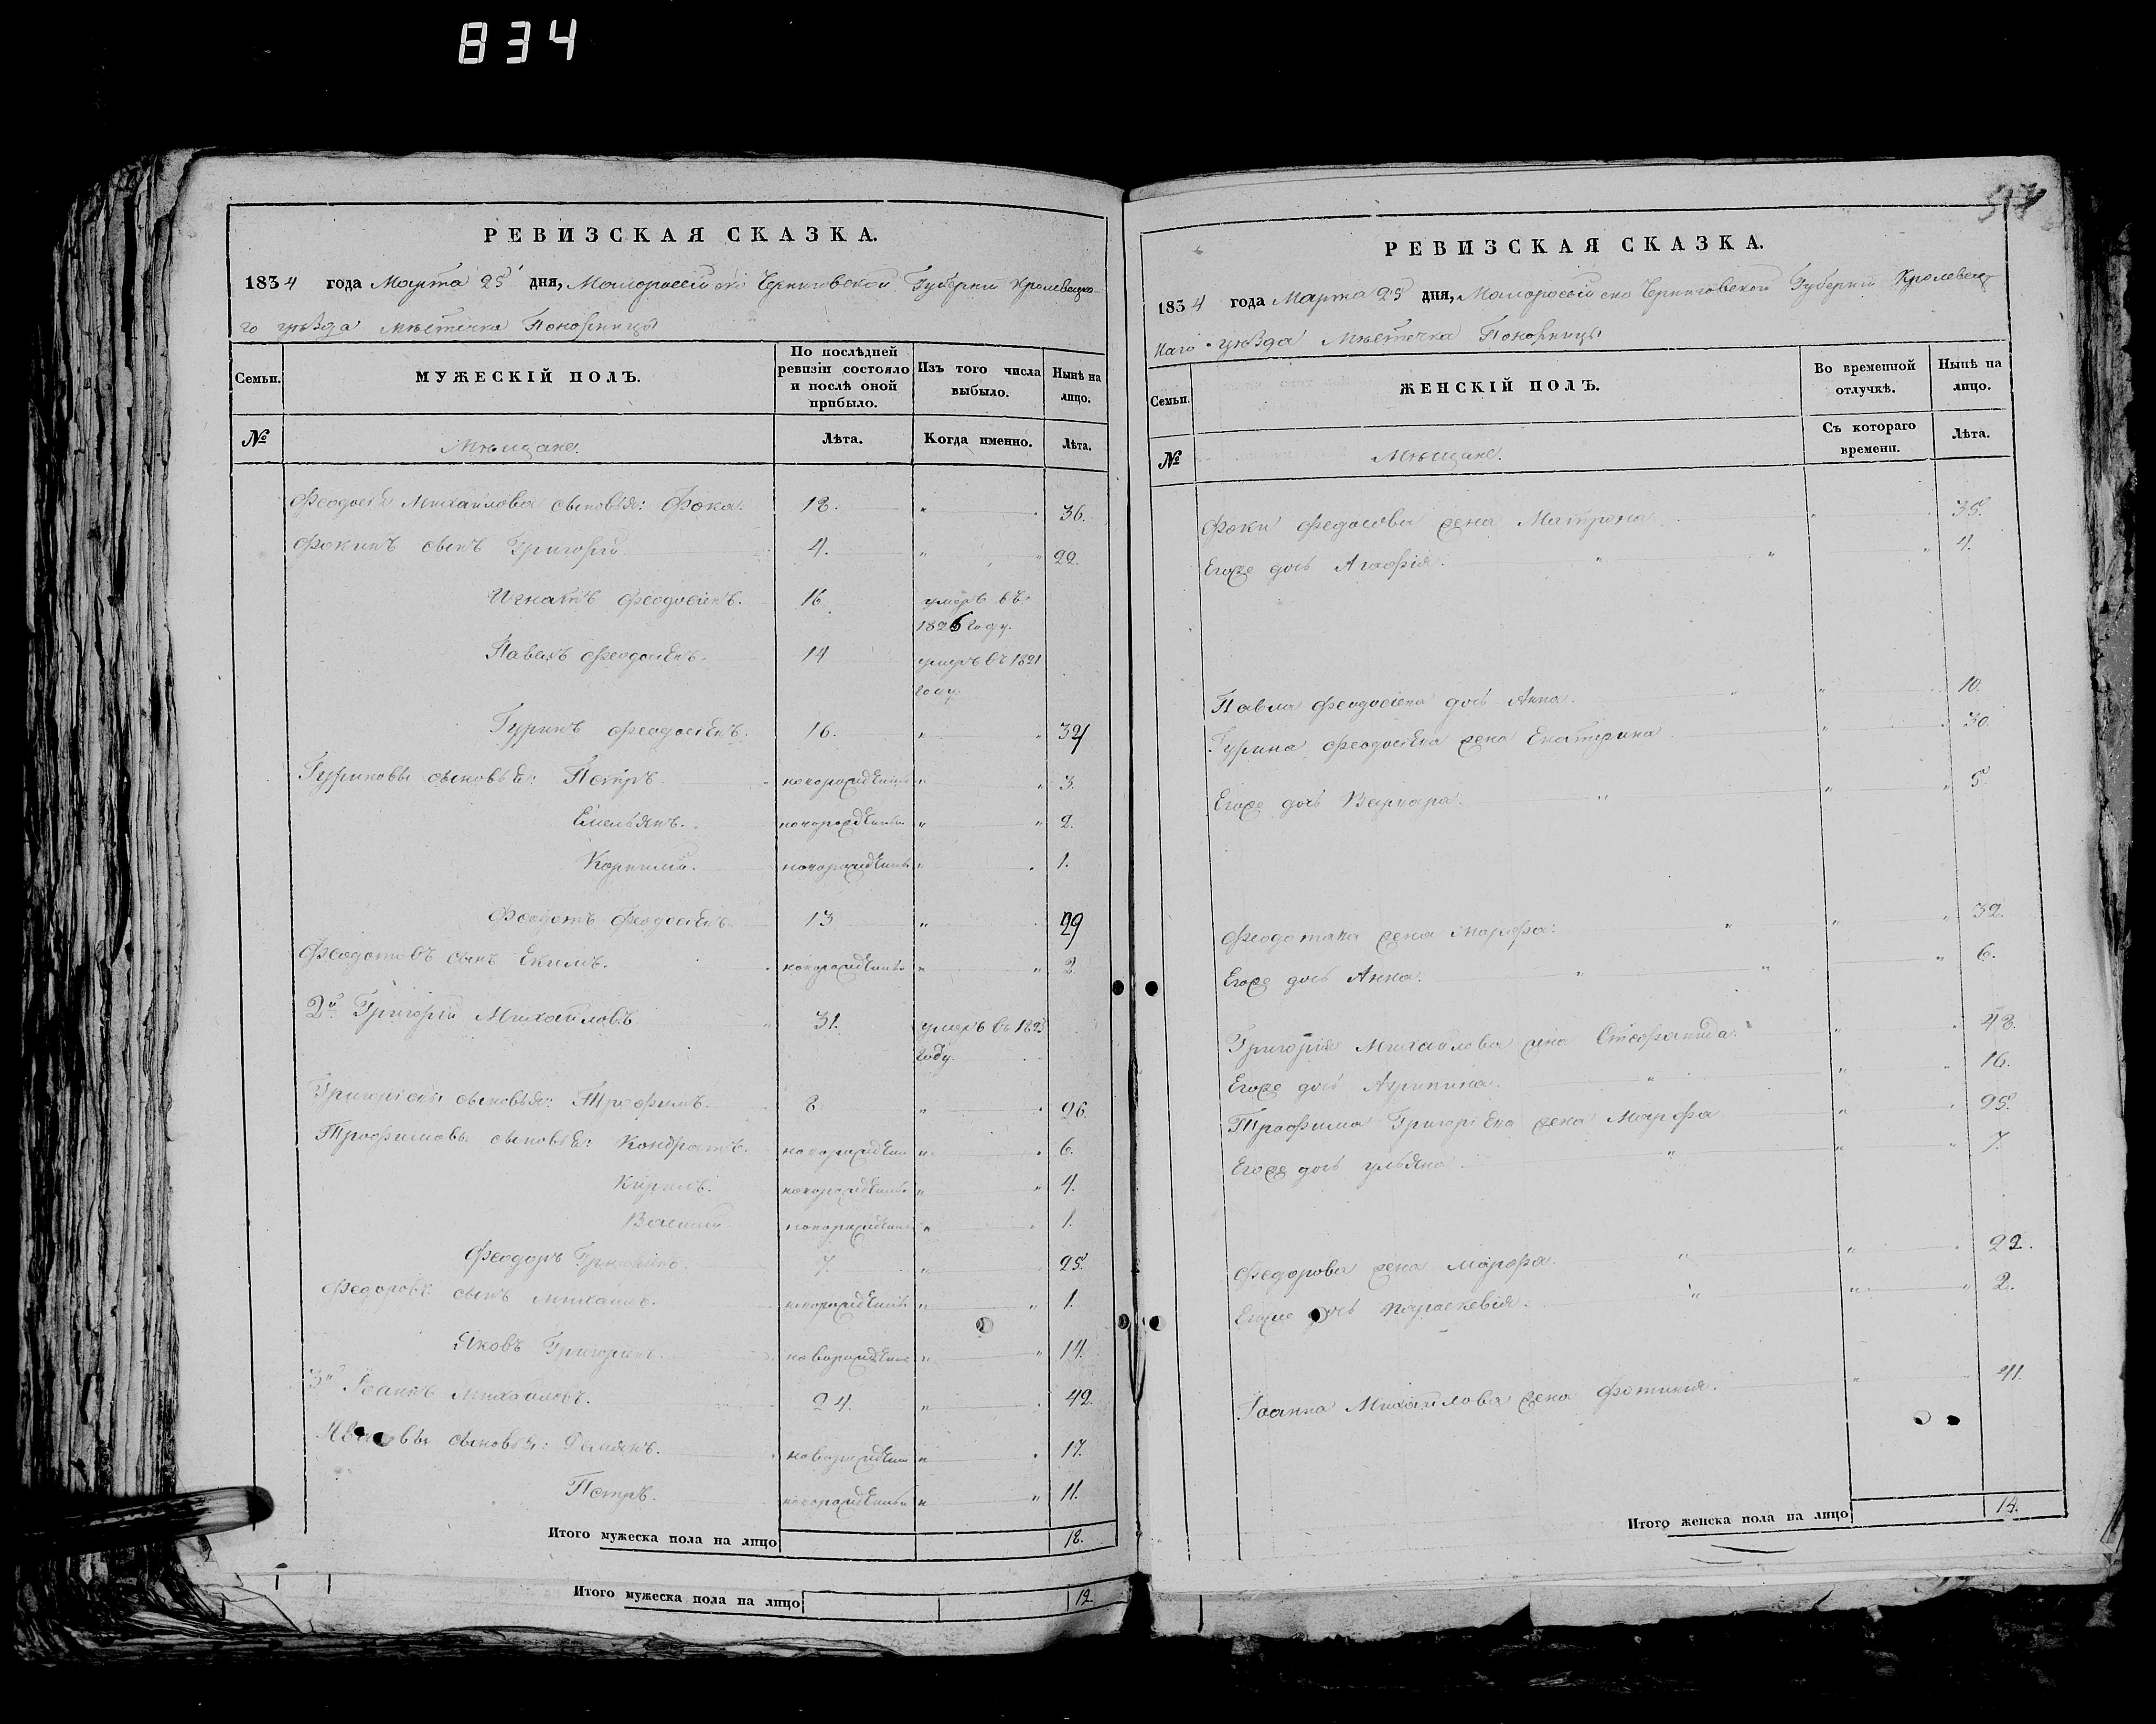 834
РЕВИЗСКАЯ СКАЗКА.
1834 года Марта 25 дня, Малоросiйско Черниговской Губернiи Кролевецка-
го уѣзда мѣстечка Понорницы
Семьи.
МУЖЕСКІЙ ПОЛЪ.
По послѣдней ревизіи состояло и послѣ оной прибыло.
Изъ того числа выбыло.
Нынѣ на лицо.
№
Мѣщане.
Лѣта.
Когда именно.
Лѣта.
Феодосiя Михайлова сыновья: Фока. 18. " 36.
Фокинъ сынъ Григорiй 4. " " 22.
Игнатъ Феодосiенъ. 16 умеръ въ
1826 году.
Павелъ Феодосiенъ. 14 умеръ въ 1821
году.
Гуринъ Феодосiенъ. 16. " "
Гуриновы сыновья: Петръ новорожденный " " 3.
Емельянъ. новорожденный " " 2.
Корнилiй. новорожденный " 1.
Феодотъ Феодосiенъ 13 " 29
Феодотовъ сынъ Екимъ. новорожденный " " 2.
2й Григорiй Михайловъ 31. умеръ въ 1823
году.
Григорiевы сыновья: Трофимъ. 8 " 26.
Трофимовы сыновья: Кондратъ. новорожден " 6.
Кирилъ. новорожденный " " 4.
Василiй новорожденный " 1.
Феодоръ Григорiенъ. 7 " 25.
Федоровъ сынъ Михаилъ. новорожденный " " 1.
Яковъ Григорiенъ. новорожден " " 14.
3й Iоаннъ Михайловъ. 24. " 42.
Ивановы сыновья: Демянъ. новорожден " 17.
Петръ. новорожденный " " 11.
Итого мужеска пола на лицо 18.
Итого мужеска пола на лицо 12.
РЕВИЗСКАЯ СКАЗКА.
1834 года Марта 25 дня, Малоросiйско Черниговской Губернiи Кролевец-
каго уѣзда мѣстечка Понорницы
Семьи.
ЖЕНСКІЙ ПОЛЪ.
Во временной отлучкѣ.
Нынѣ на лицо.
№
Мѣщане.
Съ котораго времени.
Лѣта.
Фоки Федосова жена Матрона " 35.
Егоже дочь Агафiя. " " " 4.
Павла Феодосiена дочь Анна. " " 10.
Гурина Феодосiена жена Екатерина " 30.
Егоже дочь Варвара. " " " 5
Феодотова жена Марфа: " " " 32.
Егоже дочь Анна. " " " 6.
Григорiя Михайлова жена Стефанида. " " 48.
Егоже дочь Агрипина. " " " 16.
Трофима Григорiена жена Марфа " " 25.
Егоже дочь Ульяна. " " " 7.
Федорова жена Марфа. " " 22.
Егоже дочь Параскевiя. " " " 2.
Iоанна Михайлова жена Фотинiя. " 41.
Итого женска пола на лицо 14.